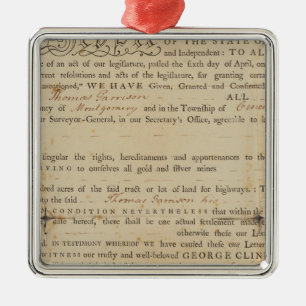 OF THE STATE O
and Independent: TO AL
e of an act of our legislature, passed the sixth day of April, on
rrent resolutions and acts of the legislature, for granting certa
mentioned," WE HAVE Given, Granted and Confirmed
Thomas Garrison ALL
y of Montgomery and in the Township of
ur Surveyor-General, in our Secretary's Office, agreeable to la
singular the rights, hereditaments and appurtenances to the
VING to ourselves all gold and silver mines
dred acres of the said tract or lot of land for highways. : T
to the said Thomas Garrison his
N CONDITION NEVERTHELESS that within the
date hereof, there shall be one actual settlement made
otherwise these our Le
ed. IN TESTIMONY WHEREOF we have caused these our Letter
WITNESS our trusty and well-beloved GEORGE CLIN